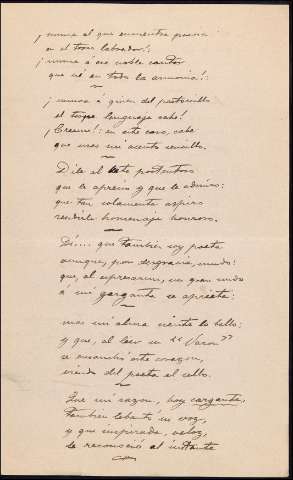 ¡nunca al que encuentra poesía
en el tosco labrador!
¡nunca á ese noble cantor
que vé en todo la armonía!..
¡nunca á quien del pastorcillo
el tosco lenguaje sabe!
¡Creeme!: en este caso, cabe
que uses mi acento sencillo.
Dile al vate portentoso
que le aprecio y que le admiro:
que tan solamente aspiro
rendirle homenaje honroso.
Dí.... que tambien soy poeta
aunque, por desgracia, mudo:
que, al espresarme, un gran nudo
á mi garganta se aprieta:
mas mi alma siente lo bello:
y que, al leer su "
se ensanchó este corazon,
viendo del poeta el sello.
Que mi razon, hoy cargante,
tambien lebantó su voz,
y que inspirada, veloz,
le reconoció al instante